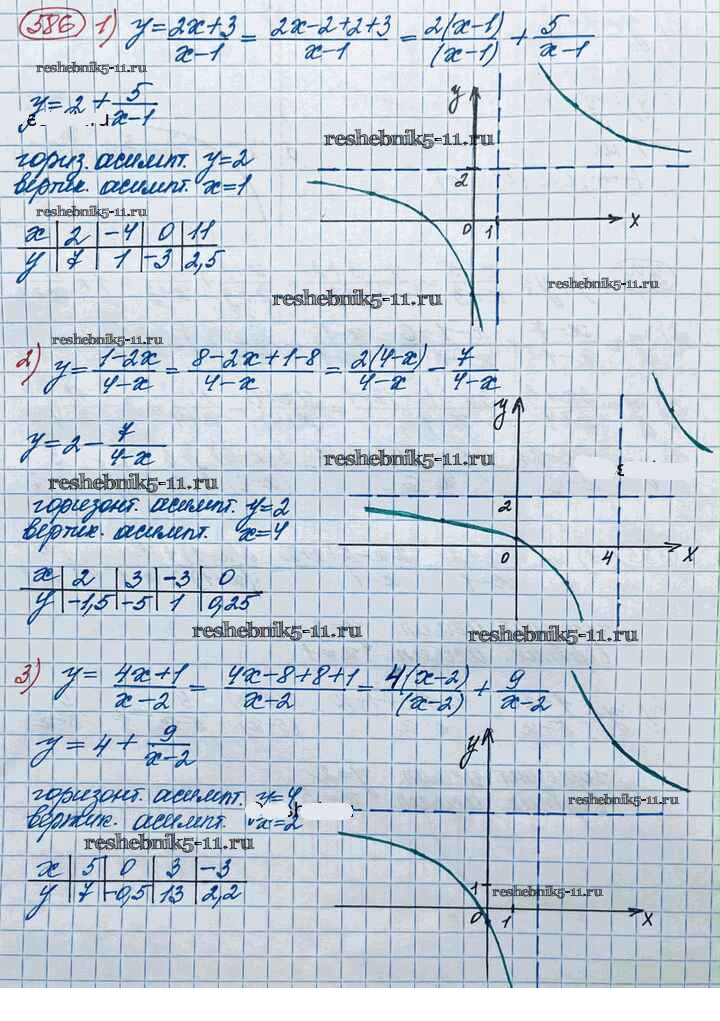 586 1) y = 2x+3 / x-1 = 2x-2+2+3 / x-1 = 2(x-1) / (x-1) + 5 / x-1
reshebnik5-11.ru
y = 2 + 5 / x-1
y
reshebnik5-11.ru
гориз. асимпт. y=2
вертик. асимпт. x=1
2
reshebnik5-11.ru
0 1 x
x | 2 | -4 | 0 | 11
y | 7 | 1 | -3 | 2,5
reshebnik5-11.ru
reshebnik5-11.ru
reshebnik5-11.ru
2) y = 1-2x / 4-x = 8-2x+1-8 / 4-x = 2(4-x) / 4-x - 7 / 4-x
y
y = 2 - 7 / 4-x
reshebnik5-11.ru
reshebnik5-11.ru
горизонт. асимпт. y=2
вертик. асимпт. x=4
2
0 4 x
x | 2 | 3 | -3 | 0
y | -1,5 | -5 | 1 | 0,25
reshebnik5-11.ru
reshebnik5-11.ru
3) y = 4x+1 / x-2 = 4x-8+8+1 / x-2 = 4(x-2) / (x-2) + 9 / x-2
y = 4 + 9 / x-2
y
горизонт. асимпт. y=4
reshebnik5-11.ru
вертик. асимпт. x=2
reshebnik5-11.ru
x | 5 | 0 | 3 | -3
y | 7 | -0,5 | 13 | 2,2
1
reshebnik5-11.ru
0 1 x